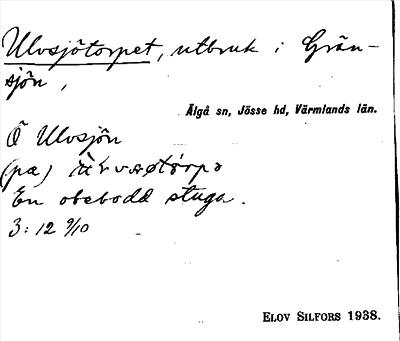 Ulvsjötorpet, utbruk i Grän-
sjön,
Älgå sn, Jösse hd, Värmlands län.
Ö Ulvsjön
(pa)
En obebodd stuga.
3:12 9/10
ELOV SILFORS 1938.